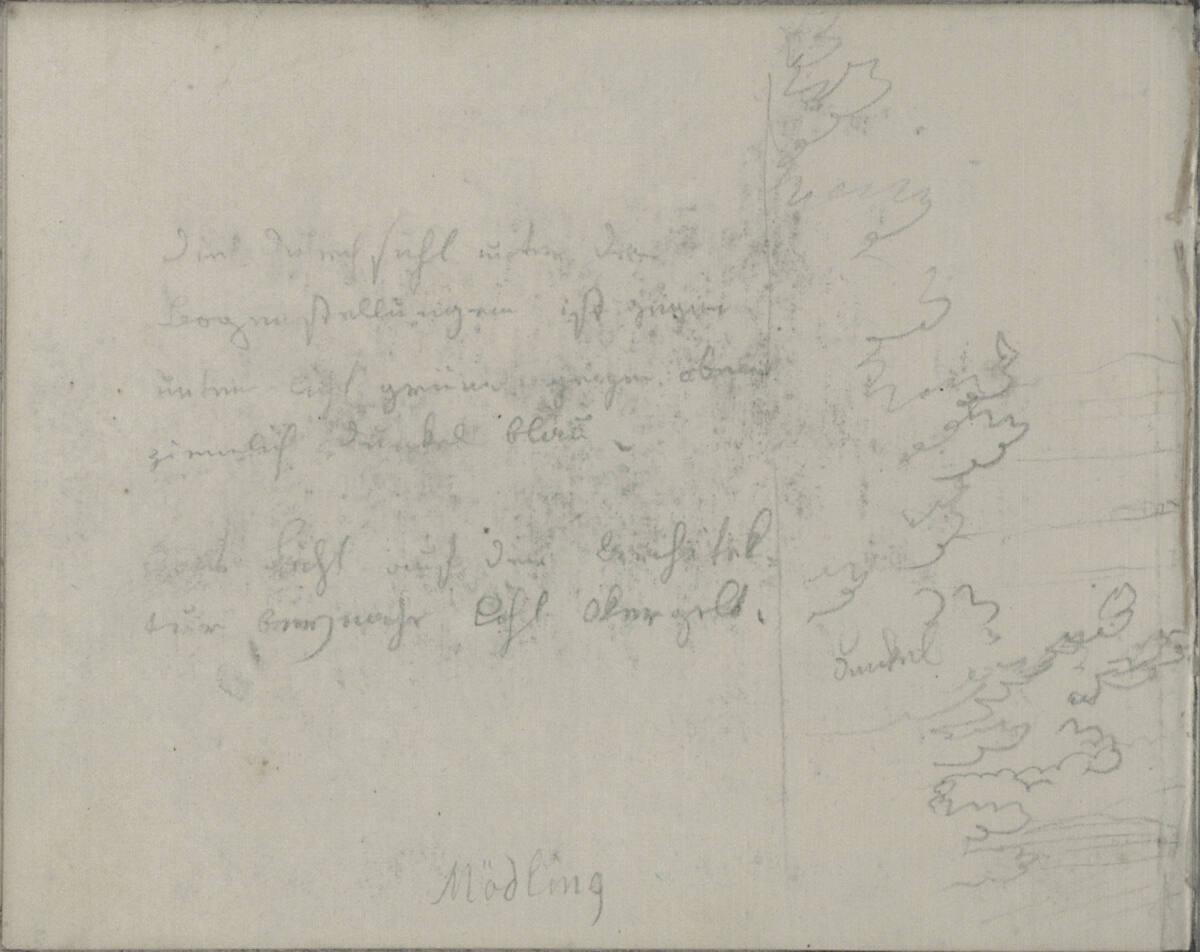 Die Durchsicht unter den
Bogenstellungen ist gegen
unten licht grün gegen oben
ziemlich dunkel blau.
das Licht auf der Architek-
tur beynahe Licht Okergelb.
dunkel
Mödling